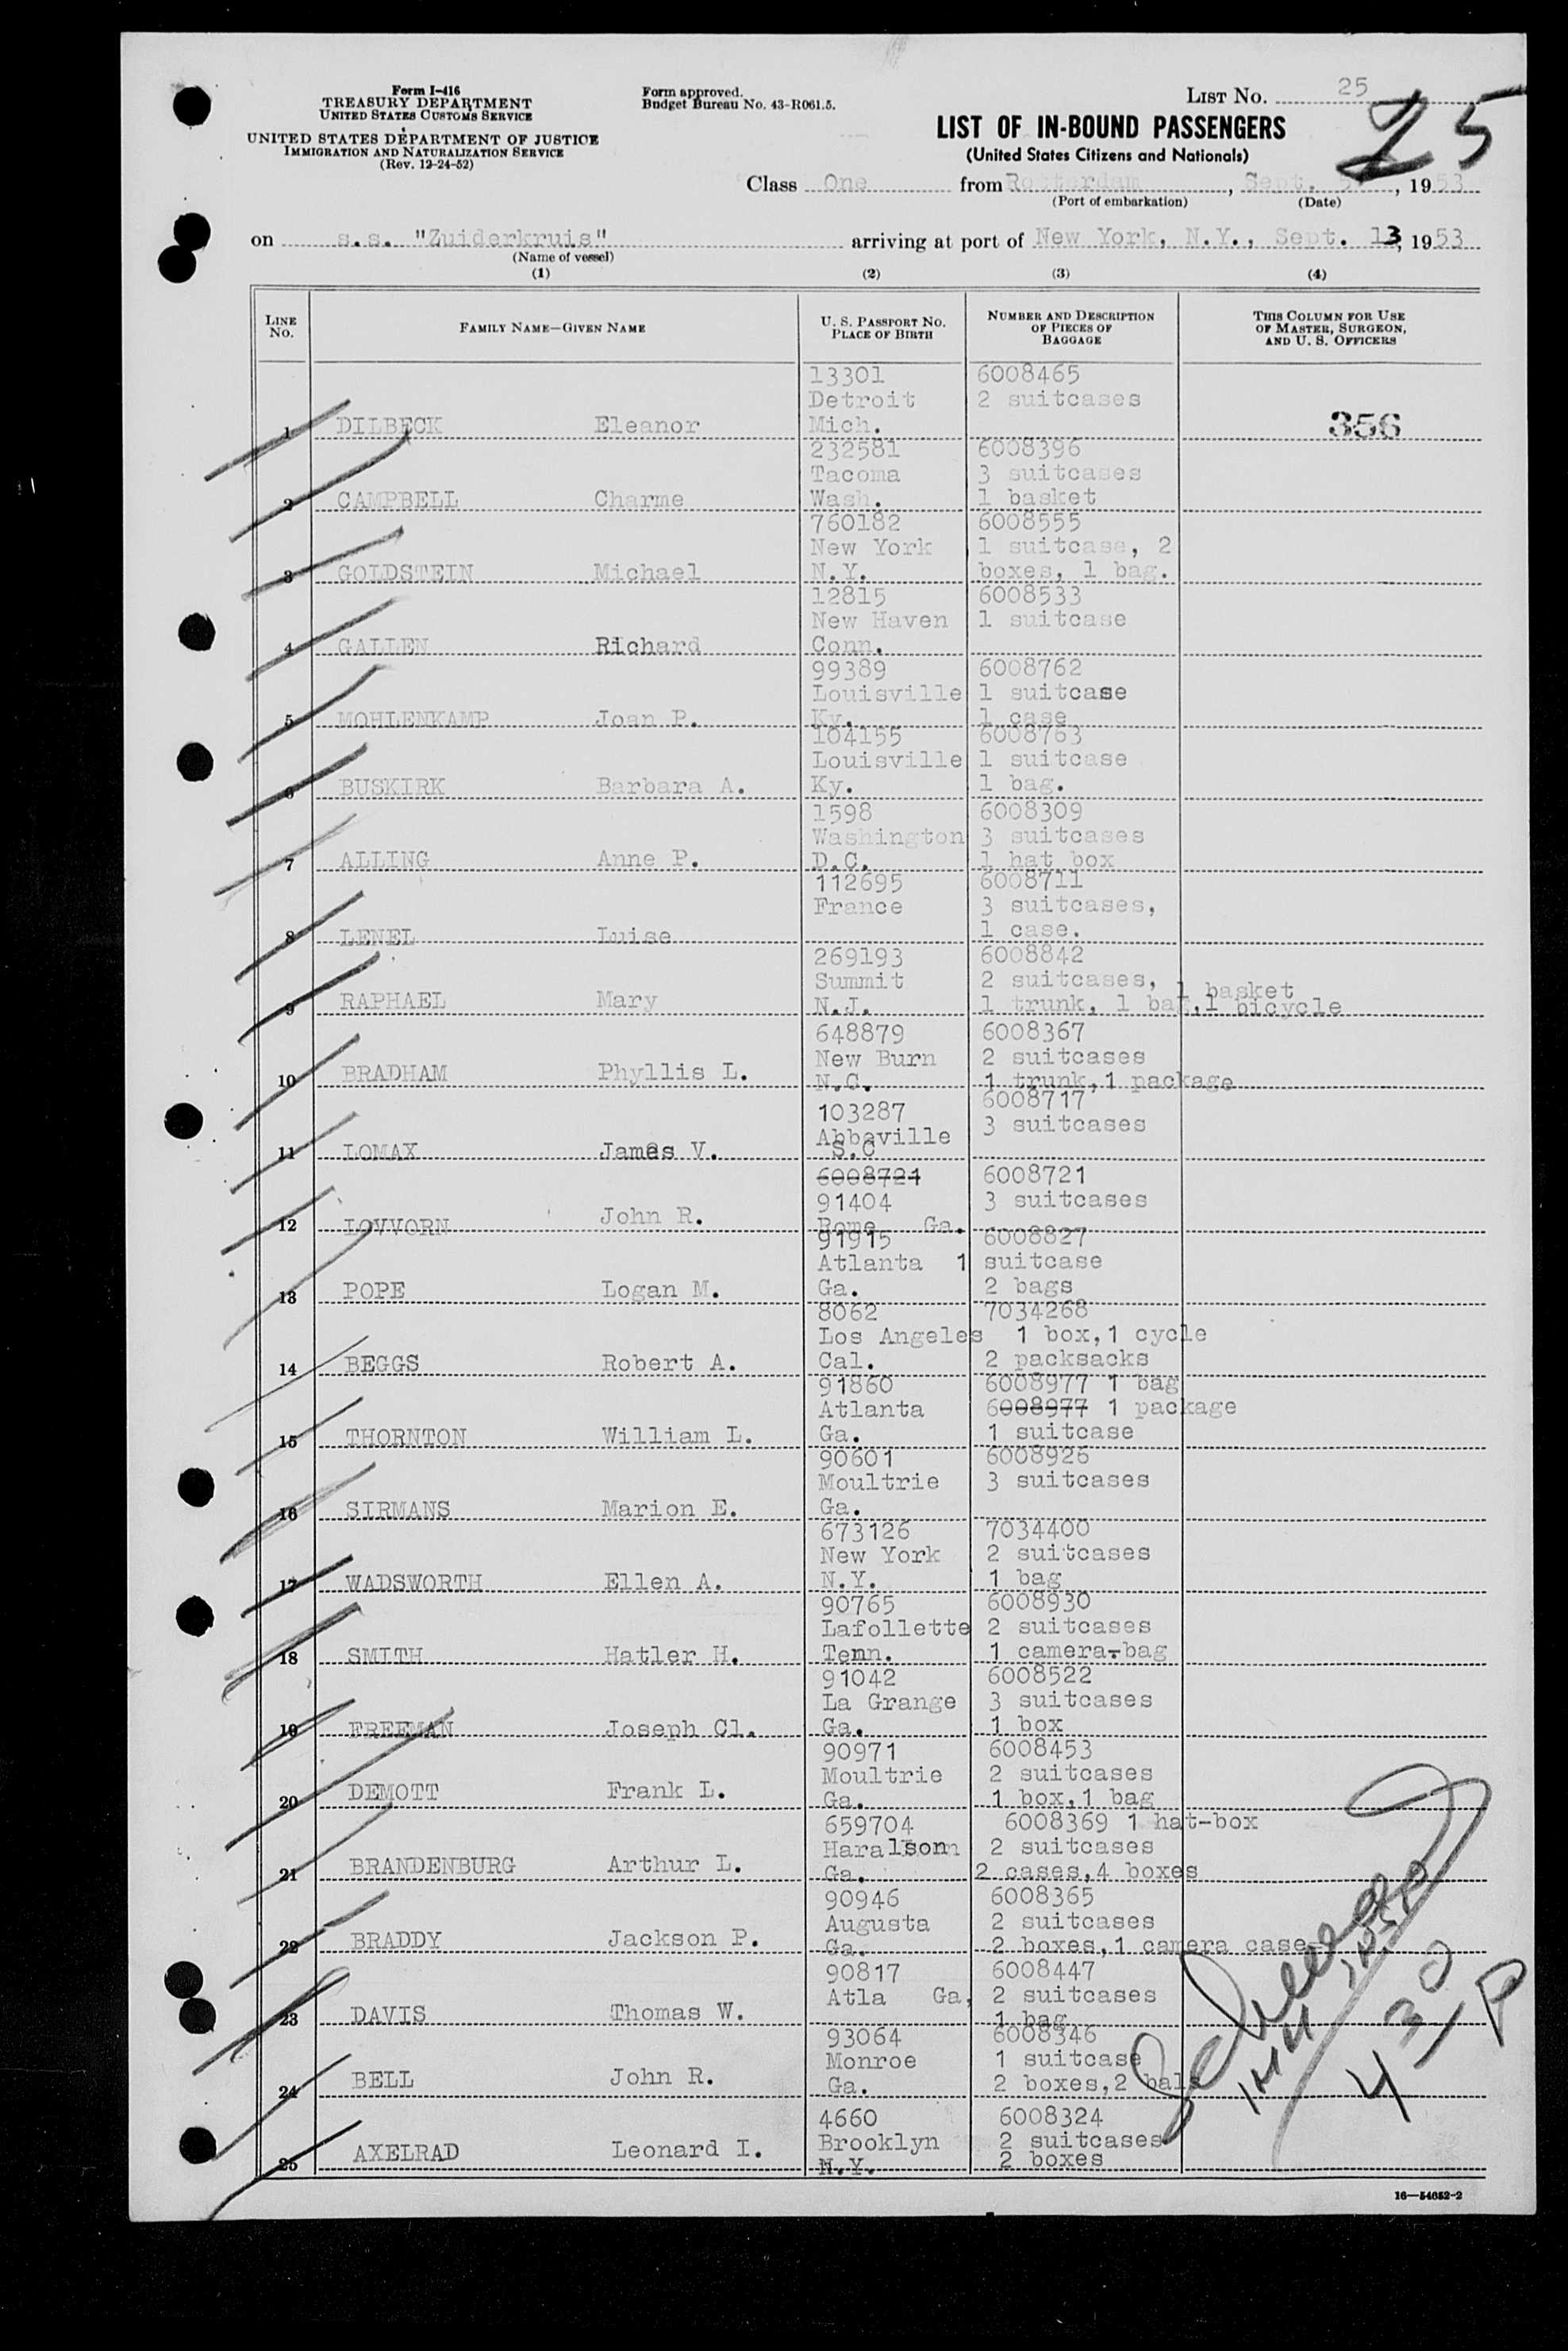 Form I-416
TREASURY DEPARTMENT
UNITED STATES CUSTOMS SERVICE
UNITED STATES DEPARTMENT OF JUSTICE
IMMIGRATION AND NATURALIZATION SERVICE
(Rev. 12-24-52)
Form approved.
Budget Bureau No. 43-R061.5.
LIST No. 25
25
LIST OF IN-BOUND PASSENGERS
(United States Citizens and Nationals)
Class One from Rotterdam, Sept. , 1953
(Port of embarkation) (Date)
on s.s. "Zuiderkruis" arriving at port of New York, N.Y., Sept. 13, 1953
(Name of vessel)
(1) (2) (3) (4)
LINE No. FAMILY NAME—GIVEN NAME U. S. PASSPORT NO. PLACE OF BIRTH NUMBER AND DESCRIPTION OF PIECES OF BAGGAGE THIS COLUMN FOR USE OF MASTER, SURGEON, AND U. S. OFFICERS
13301 6008465
Detroit 2 suitcases
1 DILBECK Eleanor Mich. 356
232581 6008396
Tacoma 3 suitcases
2 CAMPBELL Charme Wash. 1 basket
760182 6008555
New York 1 suitcase, 2
3 GOLDSTEIN Michael N.Y. boxes, 1 bag.
12815 6008533
New Haven 1 suitcase
4 GALLEN Richard Conn.
99389 6008762
Louisville 1 suitcase
5 MOHLENKAMP Joan P. Ky. 1 case
104155 6008763
Louisville 1 suitcase
6 BUSKIRK Barbara A. Ky. 1 bag.
1598 6008309
Washington 3 suitcases
7 ALLING Anne P. D.C. 1 hat box
112695 6008711
France 3 suitcases,
8 LENEL Luise 1 case.
269193 6008842
Summit 2 suitcases, 1 basket
9 RAPHAEL Mary N.J. 1 trunk, 1 bag,1 bicycle
648879 6008367
New Burn 2 suitcases
10 BRADHAM Phyllis L. N.C. 1 trunk,1 package
103287 6008717
Abbeville 3 suitcases
11 LOMAX James V. S.C
6008721 6008721
91404 3 suitcases
12 LOVVORN John R. Rome Ga.
91915 6008827
Atlanta 1 suitcase
13 POPE Logan M. Ga. 2 bags
8062 7034268
Los Angeles 1 box,1 cycle
14 BEGGS Robert A. Cal. 2 packsacks
91860 6008977 1 bag
Atlanta 6008977 1 package
15 THORNTON William L. Ga. 1 suitcase
90601 6008926
Moultrie 3 suitcases
16 SIRMANS Marion E. Ga.
673126 7034400
New York 2 suitcases
17 WADSWORTH Ellen A. N.Y. 1 bag
90765 6008930
Lafollette 2 suitcases
18 SMITH Hatler H. Tenn. 1 camera-bag
91042 6008522
La Grange 3 suitcases
19 FREEMAN Joseph Cl. Ga. 1 box
90971 6008453
Moultrie 2 suitcases
20 DEMOTT Frank L. Ga. 1 box,1 bag
659704 6008369 1 hat-box
Haralson 2 suitcases
21 BRANDENBURG Arthur L. Ga. 2 cases,4 boxes
90946 6008365
Augusta 2 suitcases
22 BRADDY Jackson P. Ga. 2 boxes,1 camera case
90817 6008447
Atla Ga, 2 suitcases
23 DAVIS Thomas W. 1 bag
93064 6008346
Monroe 1 suitcase
24 BELL John R. Ga. 2 boxes,2 bals
4660 6008324
Brooklyn 2 suitcases
25 AXELRAD Leonard I. N.Y. 2 boxes
430
P
16—54652-2